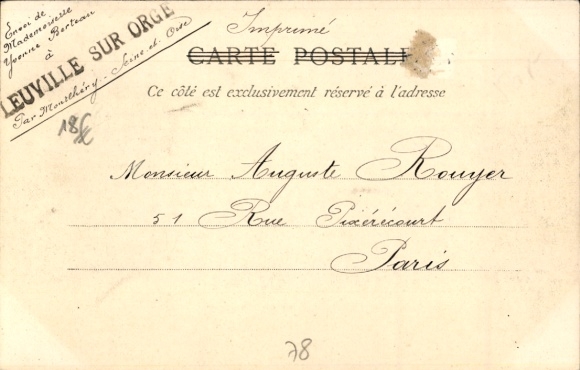 Envoi de
Mademoiselle
Yvonne Berteau
à
LEUVILLE SUR ORGE
Par Montlhéry - Seine-et-Oise
Imprimé
CARTE POSTALE
Ce côté est exclusivement réservé à l'adresse
18€
Monsieur Auguste Rouyer
51 Rue Pixérécourt
Paris
78